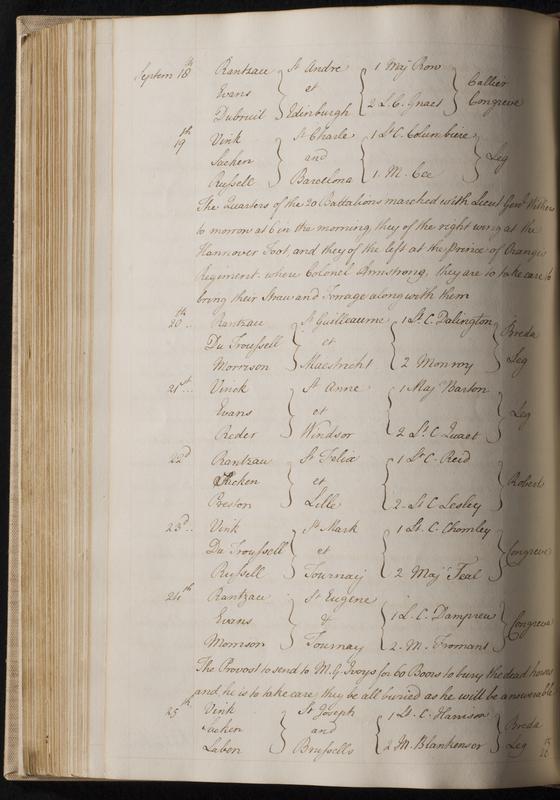 Septem 18th Rantzau } St Andre { 1 Maj Row } Collier
Evans } et
Dubreuil } Edinburgh { 2 L. C. Gnaet } Congreve
19th Vink } St Charle { 1 Lt C. Columbine
Sacken } and } Leg
Russell } Barcelona { 1. M. Cee
The Quarters of the 20 Battalions marched with Lieut Genll Withers
to morrow at 6 in the morning, they of the right wing at the
Hannover Foot, and they of the left at the Prince of Oranges
Regiment, where Colonel Armstrong, they are to take care to
bring their Straw and Forrage along with them
20th .. Rantzau } St Guilleaume { 1 Lt. C. Dalington } Breda
Du Troussell } et
Morrison } Maestricht { 2 Monroy } Leg
21st .. Vinck } St Anne { 1 Maj Barton
Evans } et } Leg
Reder } Windsor { 2 Lt C Quaet
22d Rantzau } St Felix { 1 Lt C. Reid
Sacken } et } Robert
Preston } Lille { 2 Lt C Lesley
23d .. Vink } St Mark { 1 Lt. C. Chomley
Du Troussell } et } Congreve
Russell } Tournay { 2 Maj Teal
24th Rantzau } St Eugene
Evans } & { 1 L. C. Damprew } Congreve
Morrison } Tournay { 2. M. Fromant
The Provost to send to M. G. Ivoys for 60 Boors to bury the dead horses
and he is to take care they be all buried as he will be answerable
25th Vink } St Joseph { 1 Lt. C. Harrison } Breda
Sacken } and
Labon } Brussells { 2 M. Blankensor } Leg